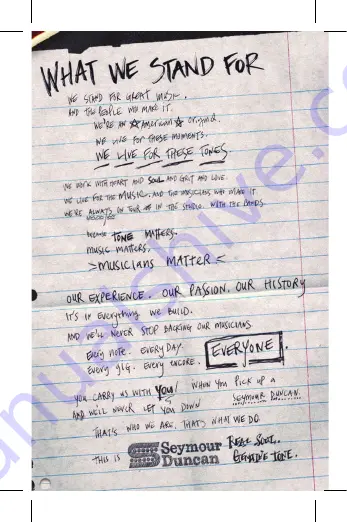 WHAT WE STAND FOR
WE STAND FOR GREAT MUSIC,
AND THE PEOPLE WHO MAKE IT.
WE'RE AN ☆ American ☆ Original.
WE LIVE FOR THESE MOMENTS.
WE LIVE FOR THESE TONES
WE WORK WITH HEART AND SOUL AND GRIT AND LOVE.
WE LIVE FOR THE MUSIC, AND THE MUSICIANS WHO MAKE IT
WE'RE ALWAYS ON TOUR IN THE STUDIO. WITH THE BANDS.
because TONE MATTERS.
MUSIC MATTERS,
>MUSICIANS MATTER<
OUR EXPERIENCE. OUR PASSION. OUR HISTORY
IT'S IN EVERYTHING WE BUILD.
AND WE'LL NEVER STOP BACKING OUR MUSICIANS
EVERY NOTE. EVERY DAY.
EVERY GIG. EVERY ENCORE. EVERYONE.
YOU CARRY US WITH YOU WHEN YOU PICK UP A
AND WE'LL NEVER LET YOU DOWN SEYMOUR DUNCAN.
THAT'S WHO WE ARE, THAT'S WHAT WE DO.
THIS IS Seymour Duncan REAL SOUL. GENUINE TONE.
manualshive.com